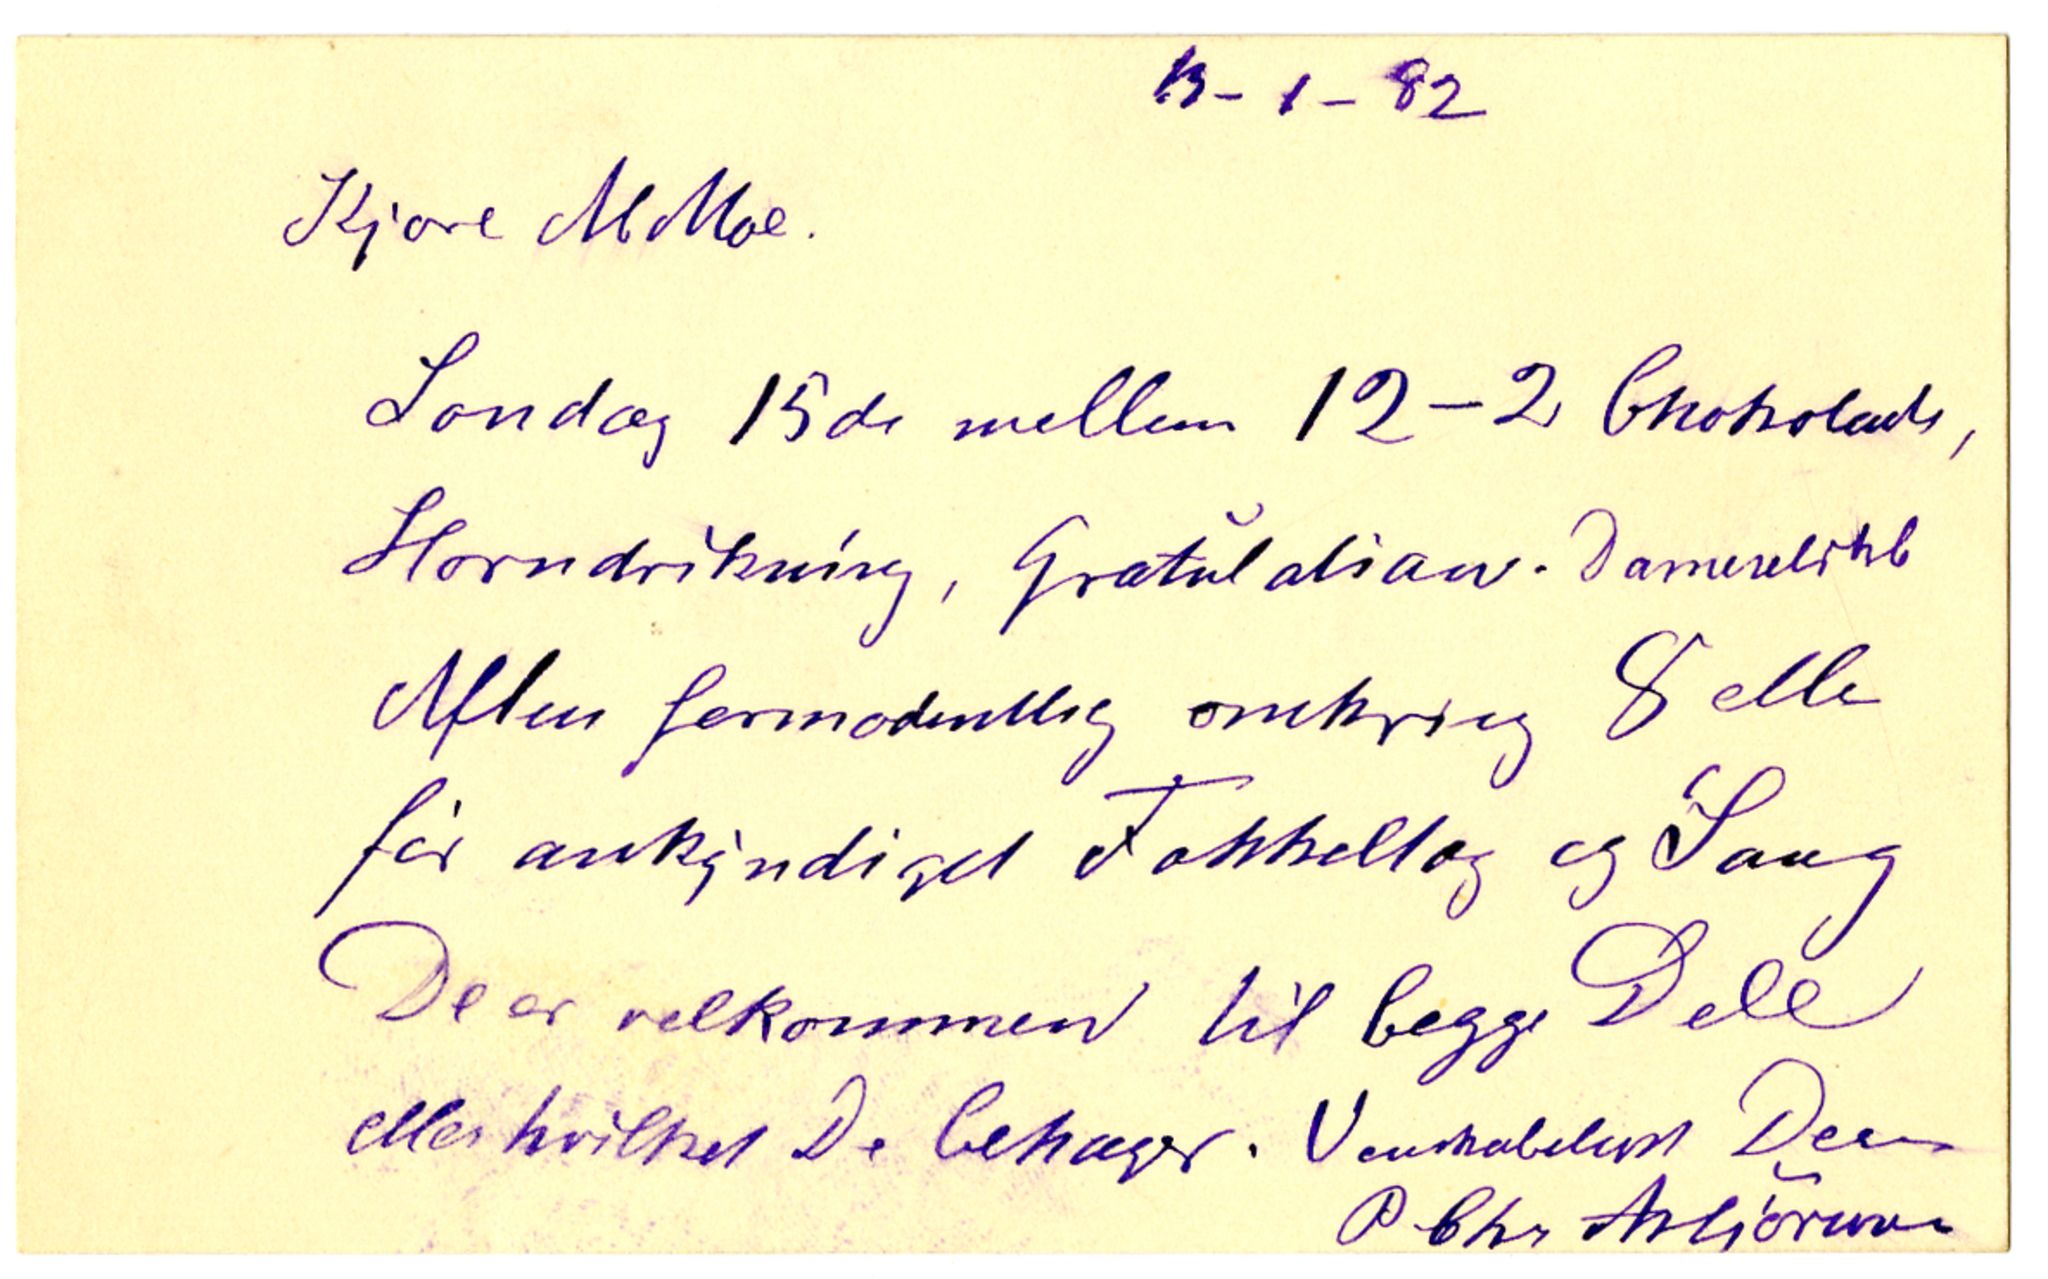 13-1-82
Kjære M Moe.
Søndag 15de mellem 12-2 Chokolade,
Horndrikning, Gratulation.
Aften formodentlig omkring 8 elle
får ankyndiget Fakkeltog og Sang
De er velkommen til begge Dele
eller hvilket De behager. Venskabeligst Deres
P Chr Asbjörnsen